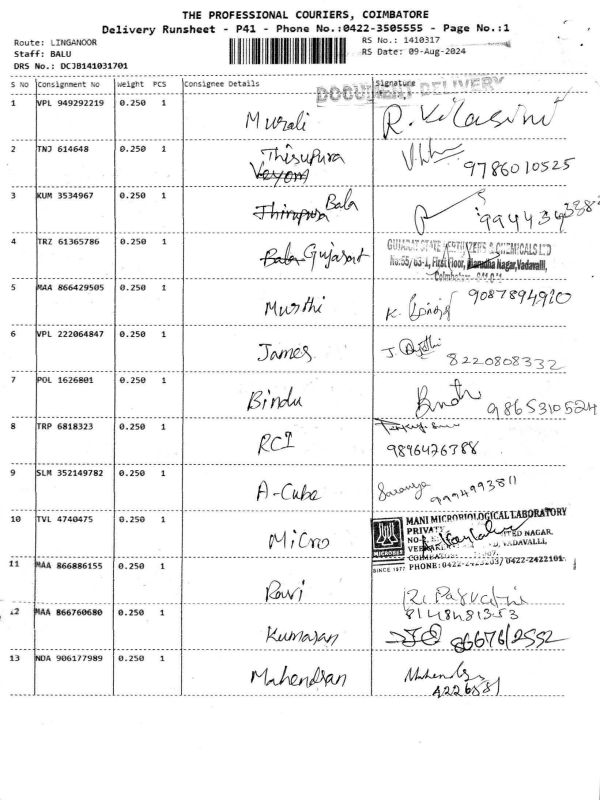 THE PROFESSIONAL COURIERS, COIMBATORE
Delivery Runsheet - P41 - Phone No.:0422-3505555 - Page No.:1
Route: LINGANOOR
RS No.: 1410317
Staff: BALU
RS Date: 09-Aug-2024
DRS No.: DCJB141031701
S No Consignment No Weight PCS Consignee Details Signature
DOCUMENT DELIVERY
1 VPL 949292219 0.250 1 Murali
2 TNJ 614648 0.250 1 Thirupura
9786010525
3 KUM 3534967 0.250 1 Bala
Thirupura
4 TRZ 61365786 0.250 1 Bala Gujarat
GUJARAT STATE FERTILIZERS & CHEMICALS LTD
First Floor, Marudha Nagar, Vadavalli,
Coimbatore
5 MAA 866429505 0.250 1 Murthi K. 9087894910
6 VPL 222064847 0.250 1 James J
8220808332
7 POL 1626801 0.250 1 Bindu Bindu 9865310524
8 TRP 6818323 0.250 1 RCI
9896426388
9 SLM 352149782 0.250 1 A-Cube Saranya 9994993811
10 TVL 4740475 0.250 1 Micro
MANI MICROBIOLOGICAL LABORATORY
PRIVATE
NAGAR,
VADAVALLI,
MICROBES
SINCE 1977
PHONE: 0422-2422101
11 MAA 866886155 0.250 1 Ravi
8148481353
12 MAA 866760680 0.250 1 Kumaran
13 NDA 906177989 0.250 1 Mahendran